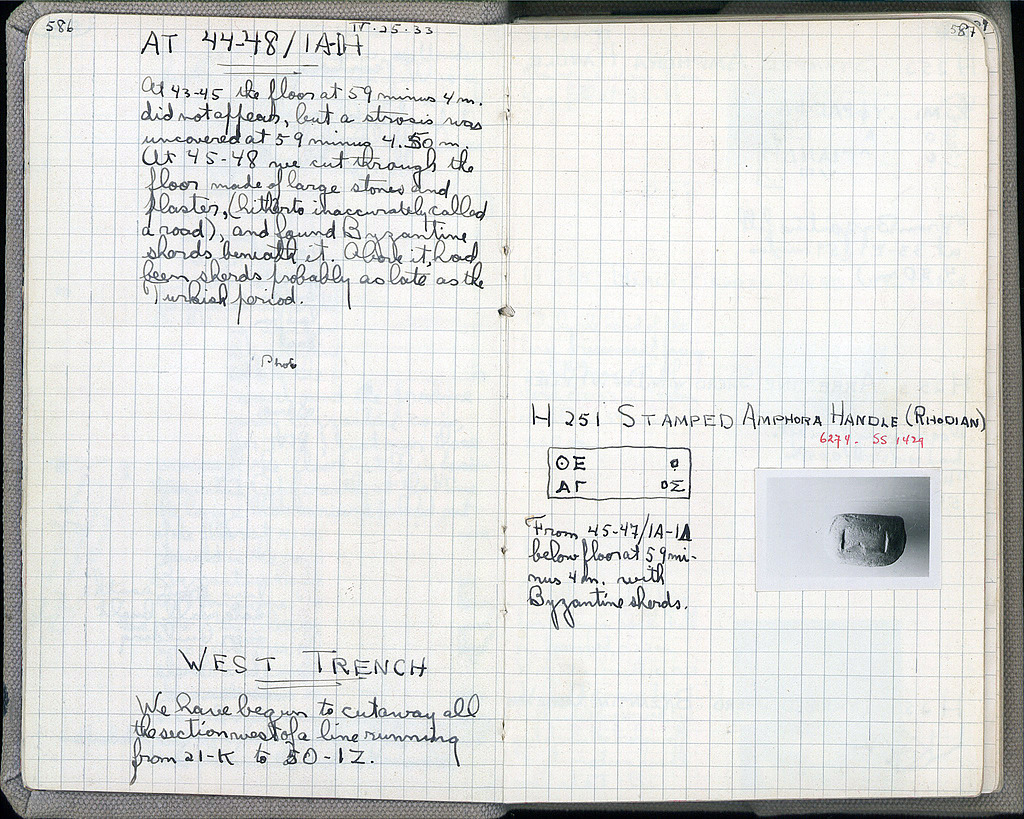 586
IV.25.33
AT 44-48/1A-1H
At 43-45 the floor at 59 minus 4 m.
did not appear, but a strosis was
uncovered at 59 minus 4.50 m.
At 45-48 we cut through the
floor made of large stones and
plaster, (hitherto inaccurately called
a road), and found Byzantine
sherds beneath it. Above it, had
been sherds probably as late as the
Turkish period.
Phot
WEST TRENCH
We have begun to cut away all
the section west of a line running
from 21-K to 50-1Z.
587
H 251 STAMPED AMPHORA HANDLE (RHODIAN)
6274. SS 1429
ΘΕ Ο
ΑΓ ΟΣ
From 45-47/1A-1Δ
below floor at 59 mi-
nus 4 m. with
Byzantine sherds.